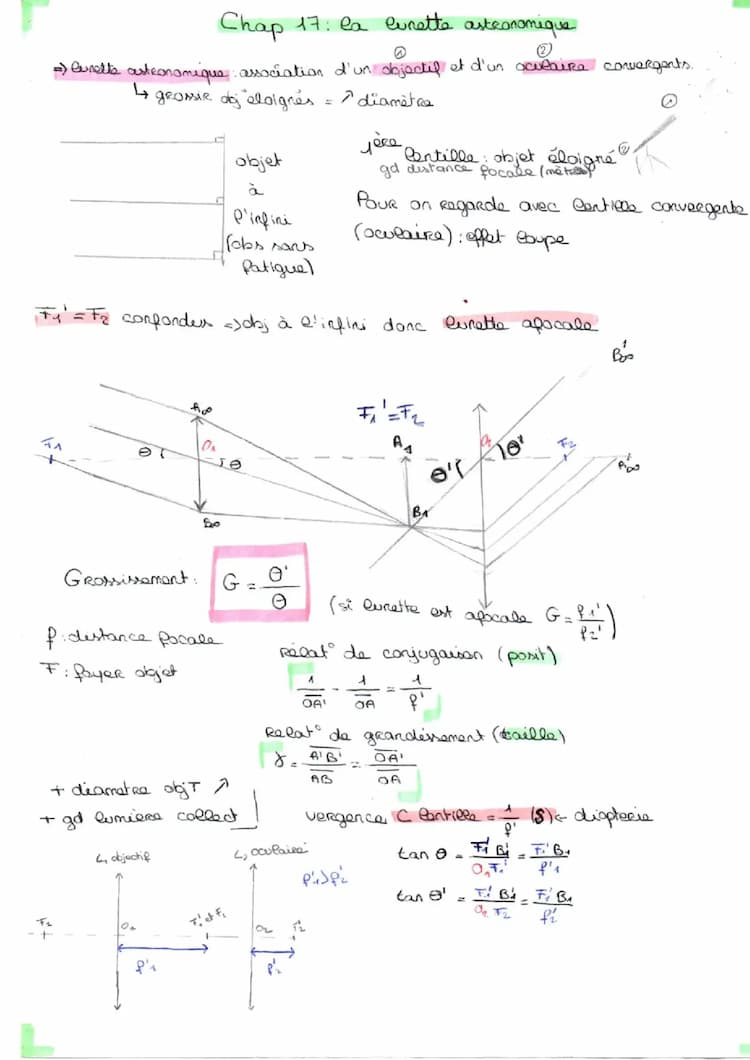 Chap 17: la lunette astronomique
① ②
=> lunette astronomique : association d'un objectif et d'un oculaire convergents.
↳ grossir obj éloignés = ↗ diamètre
①
objet
à
l'infini
(obs sans
fatigue)
1ère lentille : objet éloigné ②
gd distance focale (mètres)
Pour on regarde avec lentille convergente
(oculaire) : effet loupe
F1' = F2 confondus => obj à l'infini donc lunette afocale
B'∞
A∞
F1' = F2
F1
θ
O1
θ
A1
θ'
O2
θ'
F2
A'∞
B1
B∞
Grossissement : G = θ'/θ
(si lunette est afocale G = f1'/f2')
f : distance focale
F : foyer objet
Relat° de conjugaison (posit)
1/OA' - 1/OA = 1/f'
Relat° de grandissement (taille)
γ = A'B'/AB = OA'/OA
+ diamètre objT ↗
+ gd lumière collect
vergence C lentille = 1/f' (δ) ← dioptrie
tan θ = F1'B1'/O1F1' = F1'B1/f'1
tan θ' = F1'B1'/O2F2 = F1'B1/f'2
L1 objectif
L2 oculaire
f'1 > f'2
F2
O1
F1' et F2
O2
F2'
f'1
f'2